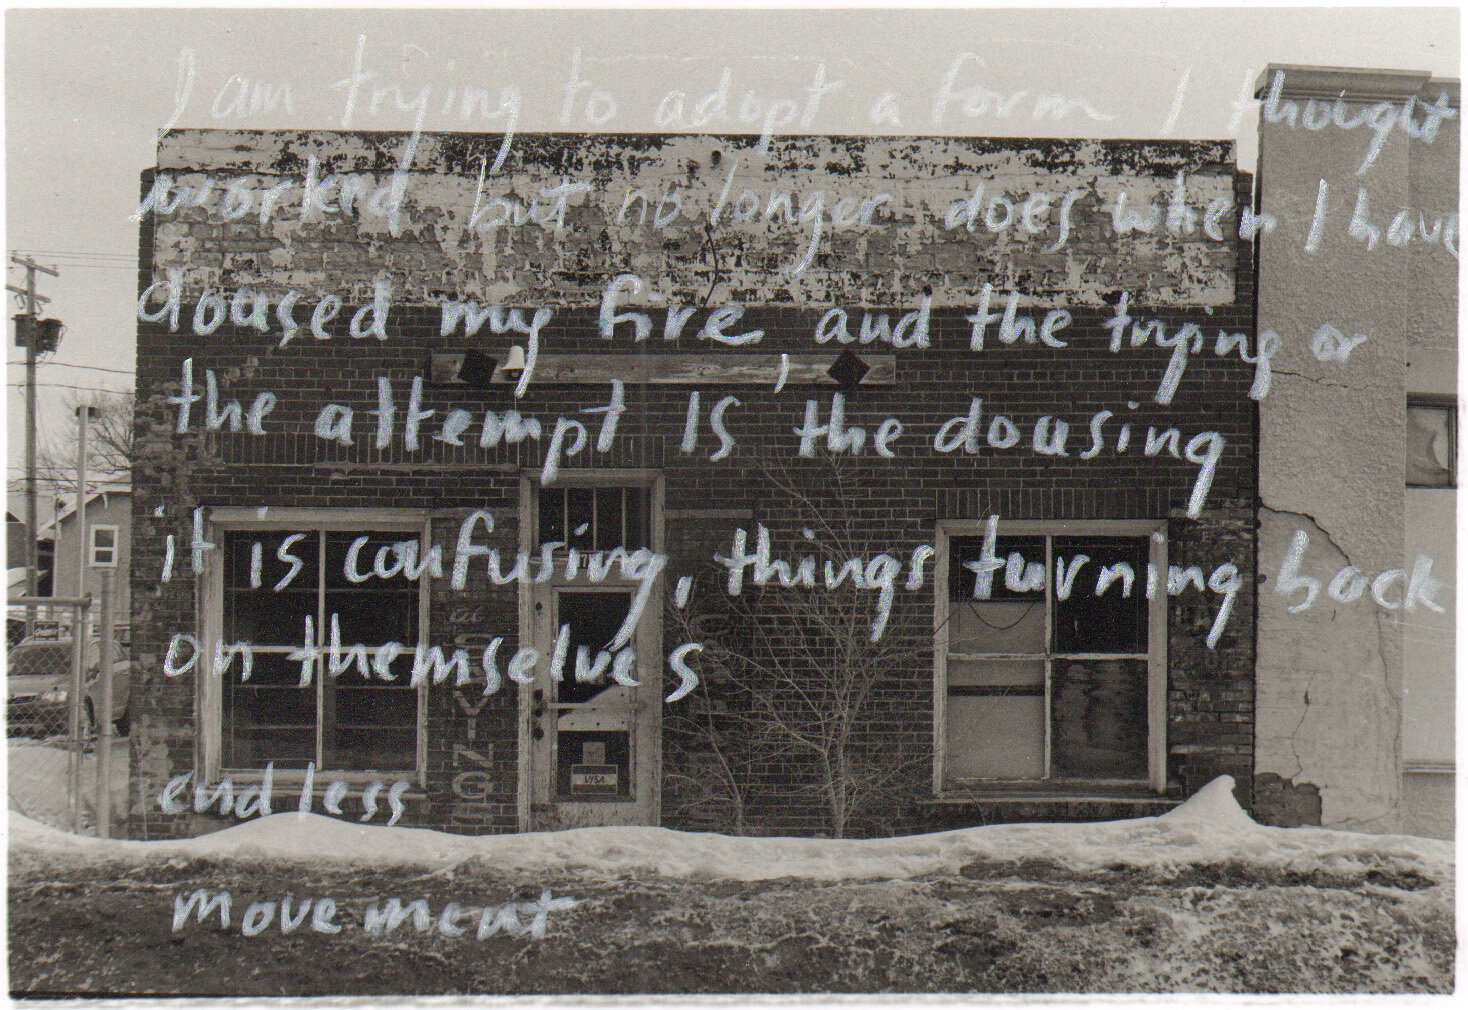 I am trying to adopt a form I thought
workid but no longer does when I have
doused my fire, and the trying or
the attempt is, the dousing
it is confusing, things turning back
on themselves
endless
movement
VISA